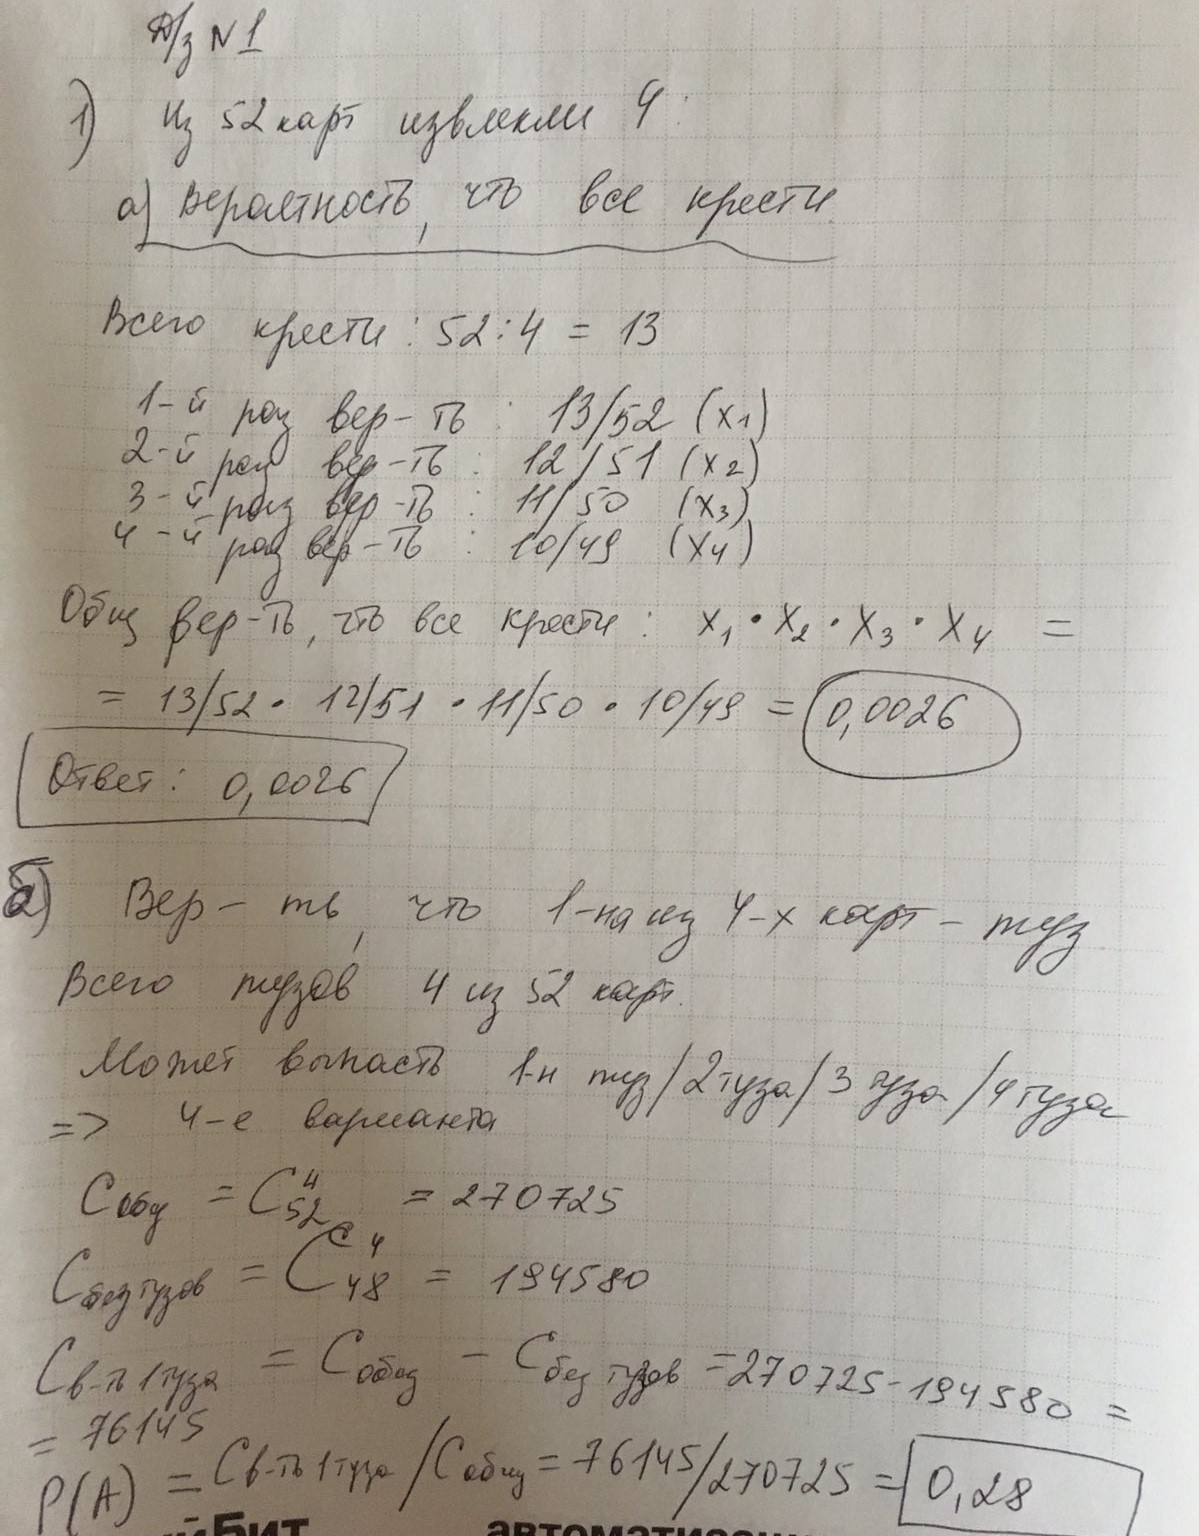 Д/з N1
1) Из 52 карт извлекли 4:
а) Вероятность, что все крести
Всего крести: 52:4 = 13
1-й раз вер-ть: 13/52 (x1)
2-й раз вер-ть: 12/51 (x2)
3-й раз вер-ть: 11/50 (x3)
4-й раз вер-ть: 10/49 (x4)
Общ вер-ть, что все крести: x1 • x2 • x3 • x4 =
= 13/52 • 12/51 • 11/50 • 10/49 = 0,0026
Ответ: 0,0026
б) Вер-ть, что 1-на из 4-х карт - туз
Всего тузов 4 из 52 карт.
Может выпасть 1-н туз/2 туза/3 туза/4 туза
=> 4-е варианта
Cобщ = C⁴52 = 270725
Cбез тузов = C⁴48 = 194580
Cв-ть 1 туза = Cобщ - Cбез тузов = 270725-194580 =
= 76145
P(A) = Cв-ть 1 туза / Cобщ = 76145/270725 = 0,28
йБит